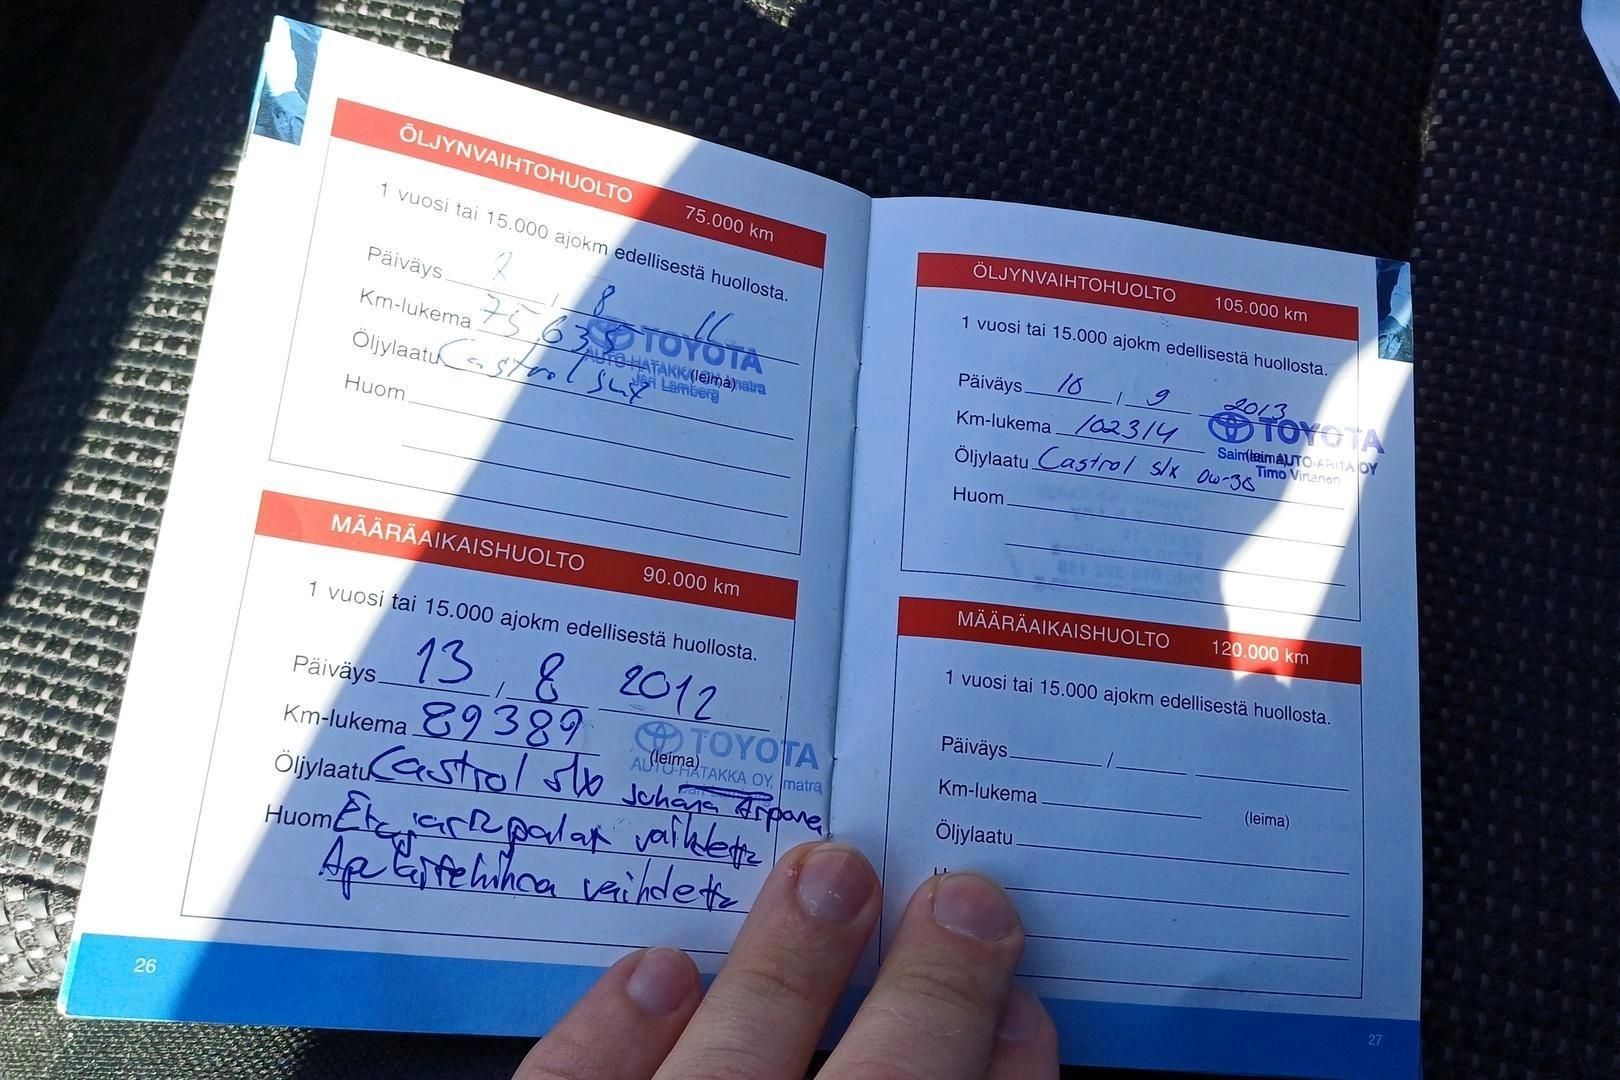 ÖLJYNVAIHTOHUOLTO 75.000 km
1 vuosi tai 15.000 ajokm edellisestä huollosta.
Päiväys 2 / 8 11
Km-lukema 75.635
TOYOTA
AUTO-HATAKKA OY, Imatra
(leima)
Jari Lamberg
Öljylaatu Castrol slx
Huom
MÄÄRÄAIKAISHUOLTO 90.000 km
1 vuosi tai 15.000 ajokm edellisestä huollosta.
Päiväys 13 / 8 2012
Km-lukema 89389
TOYOTA
(leima)
AUTO-HATAKKA OY, Imatra
Öljylaatu Castrol slx Juhana
Huom Etujarrupalat vaihdettu
Apulaitehihna vaihdettu
26
ÖLJYNVAIHTOHUOLTO 105.000 km
1 vuosi tai 15.000 ajokm edellisestä huollosta.
Päiväys 10 / 9 2013
Km-lukema 102314
TOYOTA
(leima)
Saimaan AUTO-ARITA OY
Timo Virtanen
Öljylaatu Castrol slx 0w-30
Huom
MÄÄRÄAIKAISHUOLTO 120.000 km
1 vuosi tai 15.000 ajokm edellisestä huollosta.
Päiväys /
Km-lukema
(leima)
Öljylaatu
27